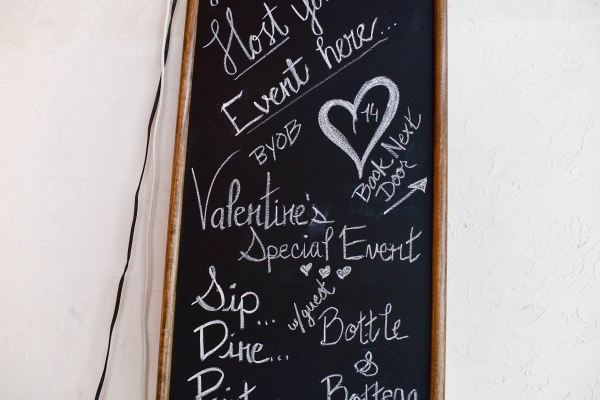 Host yo
Event here...
BYOB
14
Book Next
Door
Valentine's
Special Event
Sip...
Dine...
w/guest
Bottle
&
Bottega